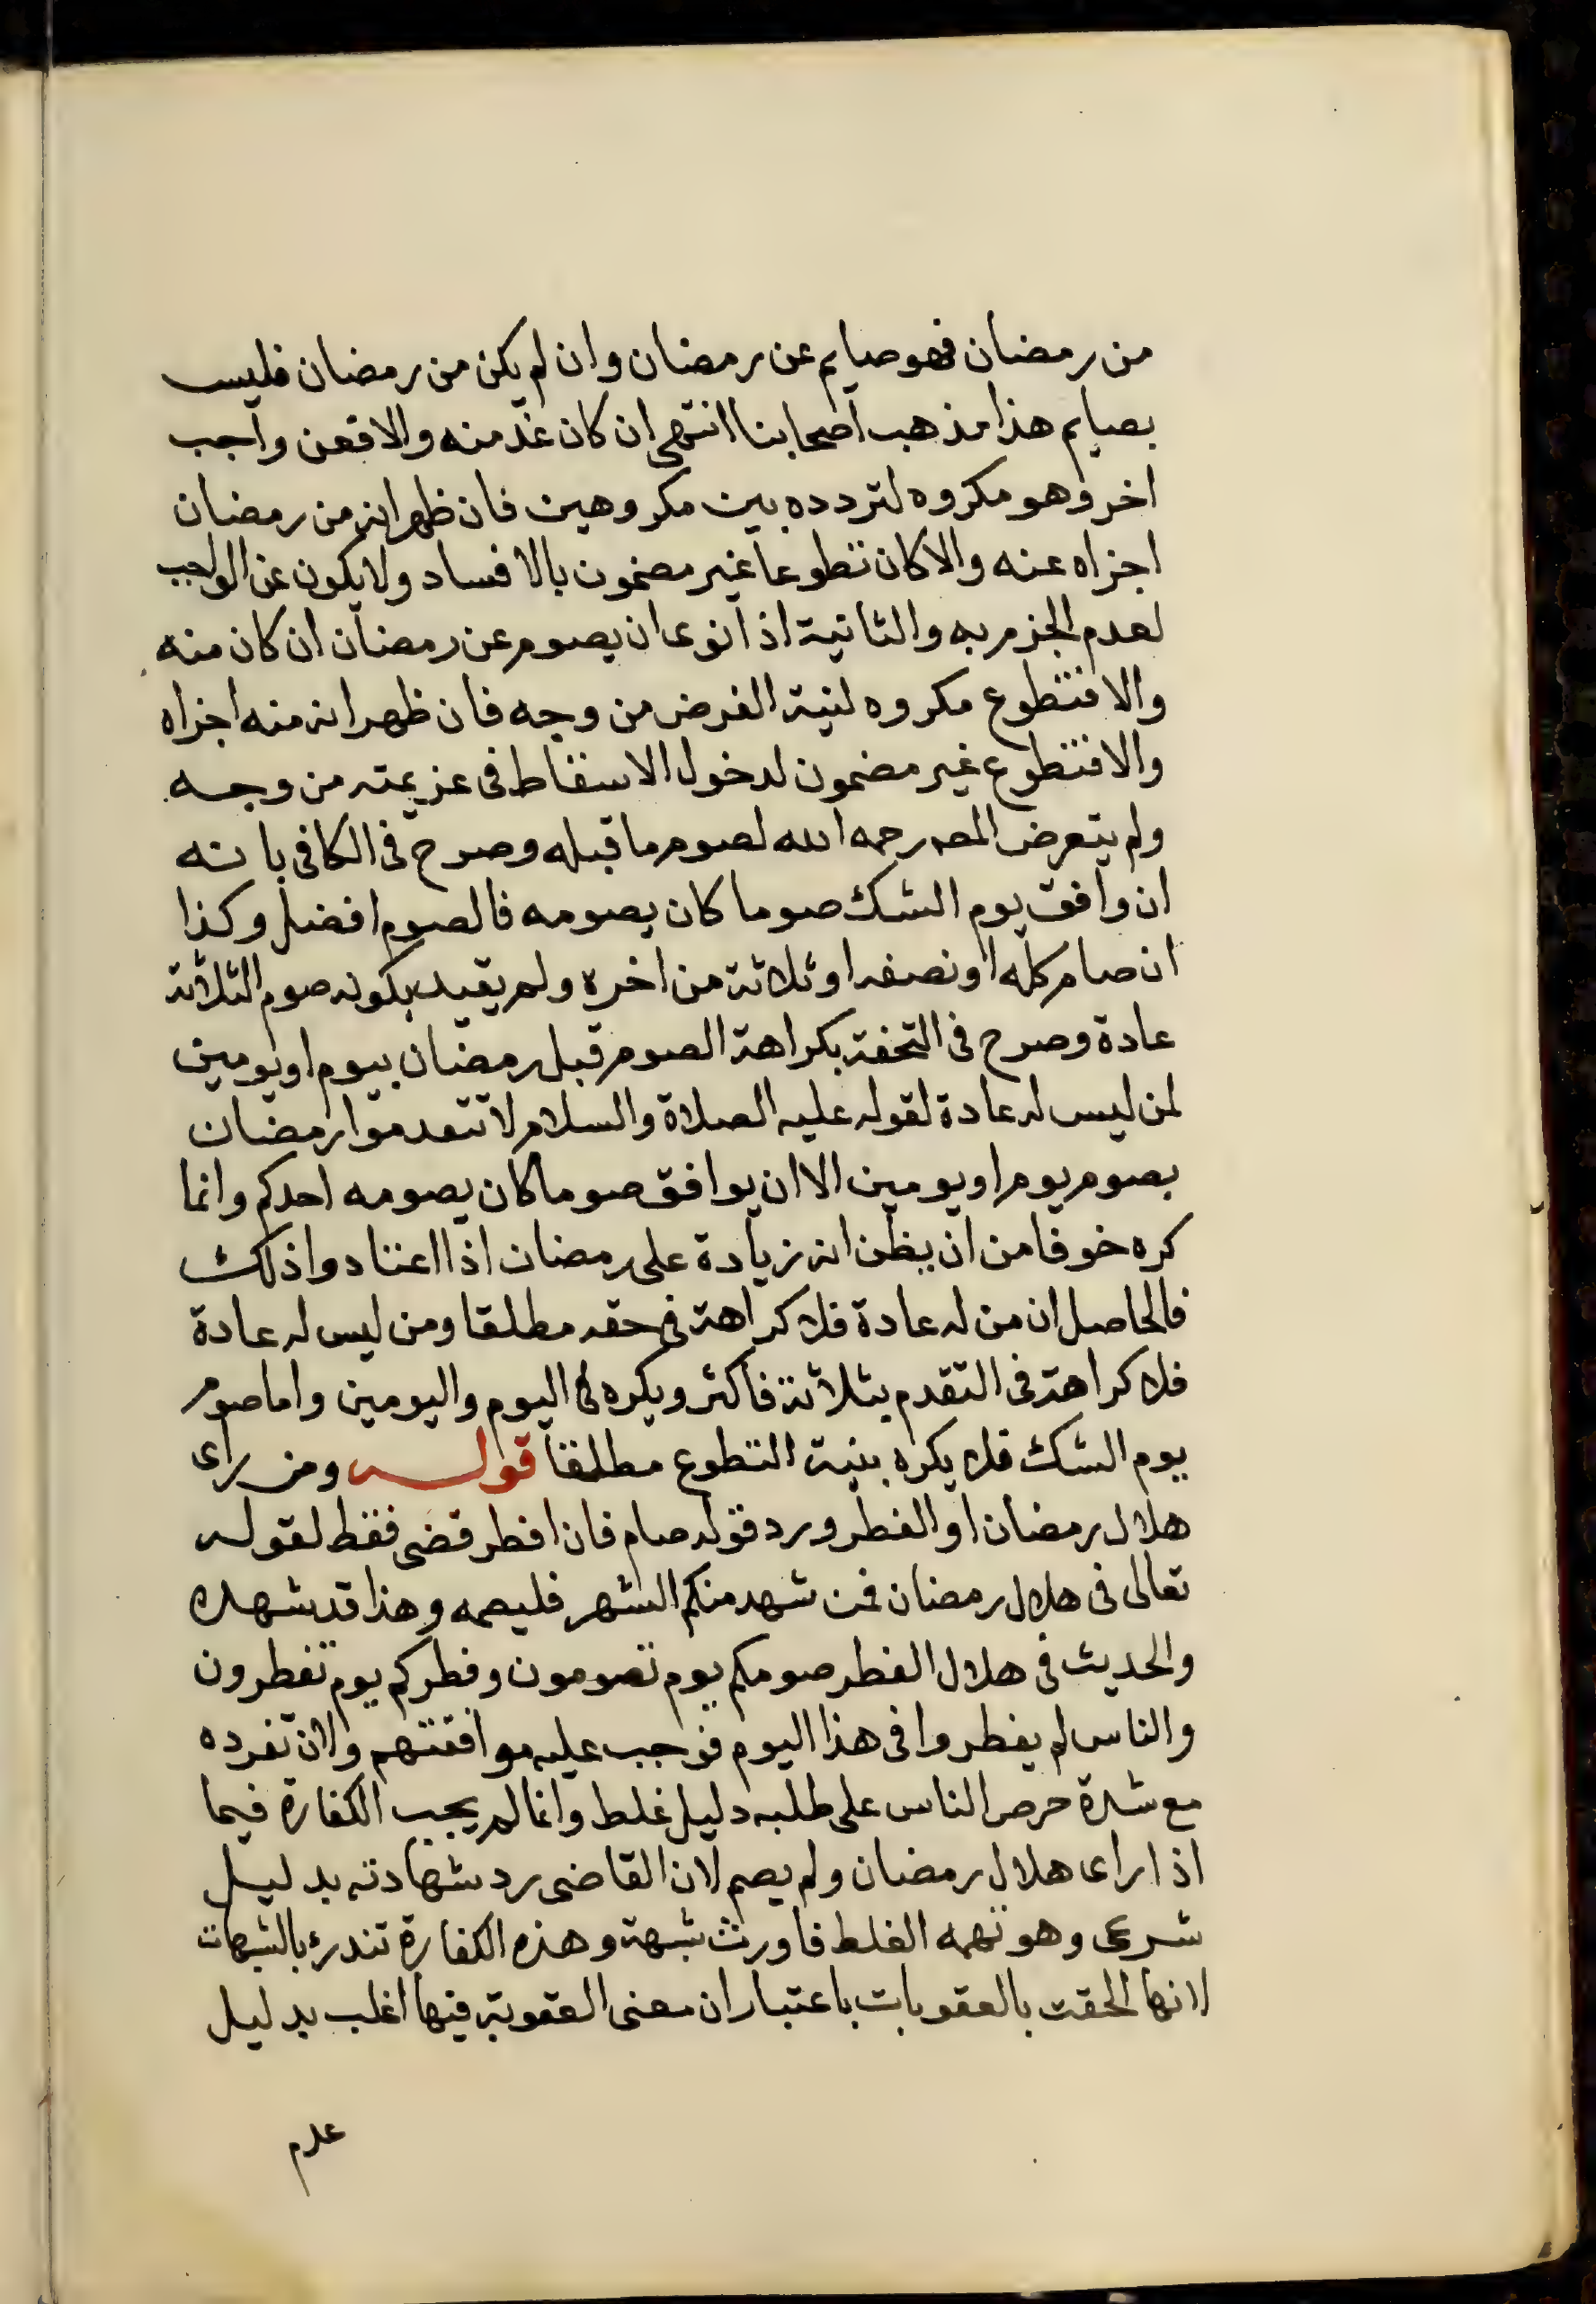 من رمضان فهو صايم عن رمضان وان لم يكن من رمضان فليس
بصايم هذا مذهب اصحابنا انتهى ان كان غد منه والا فعن واجب
اخر وهو مكروه لتردده بين مكروهين فان ظهر انه من رمضان
اجزاه عنه والا كان تطوعا غير مضمون بالافساد ولا يكون عن الواجب
لعدم الجزم به والثانية اذا نوى ان يصوم عن رمضان ان كان منه
والا فتطوع مكروه لنية الفرض من وجه فان ظهر انه منه اجزاه
والا فتطوع غير مضمون لدخول الاسقاط فى عزيمته من وجه
ولم يتعرض المصه رحمه الله لصوم ما قبله وصرح فى الكافى بانه
ان وافق يوم الشك صوما كان يصومه فالصوم افضل وكذا
ان صام كله او نصفه او ثلاثة من اخره ولم يقيد بكونه صوم الثلاثة
عادة وصرح فى التحفة بكراهة الصوم قبل رمضان بيوم او يومين
لمن ليس له عادة لقوله عليه الصلاة والسلام لا تتقدموا رمضان
بصوم يوم او يومين الا ان يوافق صوما كان يصومه احدكم وانما
كره خوفا من ان يظن انه زيادة على رمضان اذا اعتادوا ذلك
فالحاصل ان من له عادة فلا كراهة فى حقه مطلقا ومن ليس له عادة
فلا كراهة فى التقدم بثلاثة فاكثر ويكره فى اليوم واليومين واما صوم
يوم الشك فلا يكره بنية التطوع مطلقا قوله ومن راى
هلال رمضان او الفطر ورد قوله صام فان افطر قضى فقط لقوله
تعالى فى هلال رمضان فمن شهد منكم الشهر فليصمه وهذا قد شهده
والحديث فى هلال الفطر صومكم يوم تصومون وفطركم يوم تفطرون
والناس لم يفطروا فى هذا اليوم فوجب عليه موافقتهم ولان تفرده
مع شدة حرص الناس على طلبه دليل غلط وانما لم يجب الكفارة فيما
اذا راى هلال رمضان ولم يصم لان القاضى رد شهادته بدليل
شرعى وهو تهمه الغلط فاورث شبهة وهذه الكفارة تندرئ بالشبهات
لانها الحقت بالعقوبات باعتبار ان معنى العقوبة فيها اغلب بدليل
عدم